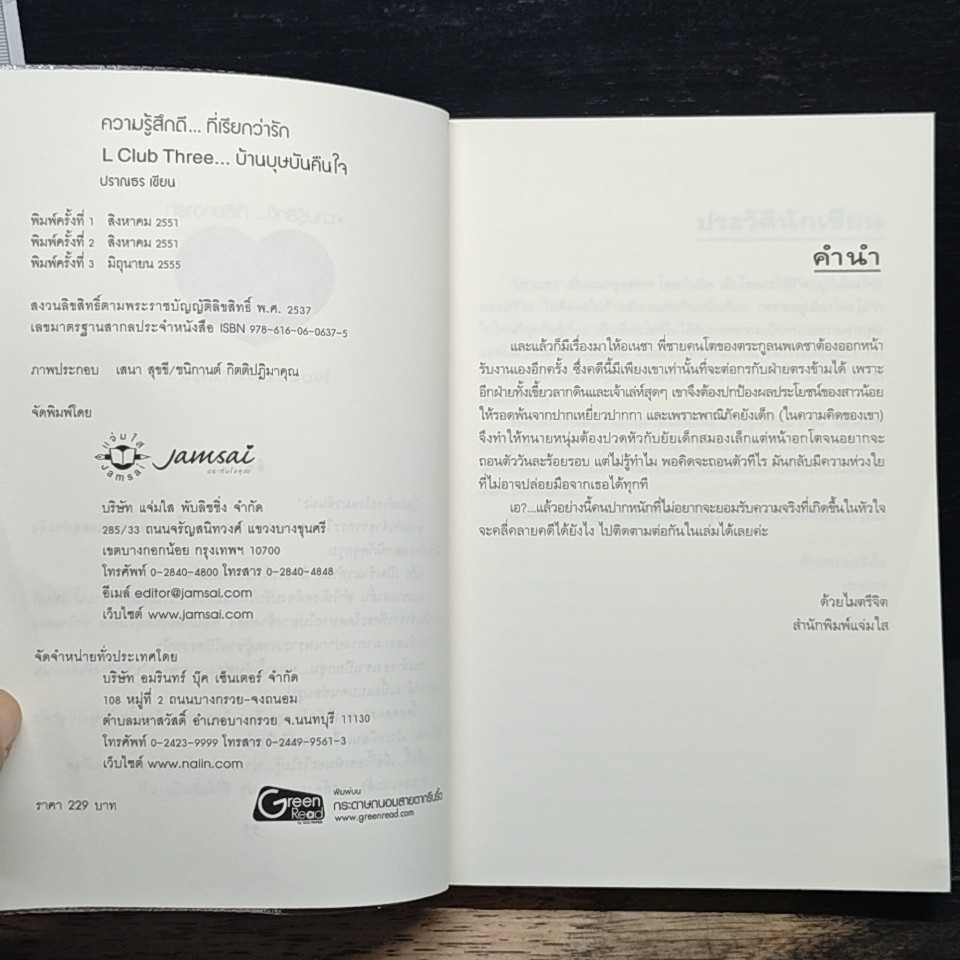 ความรู้สึกดี... ที่เรียกว่ารัก
L Club Three... บ้านบุษบันคืนใจ
ปราณธร เขียน
พิมพ์ครั้งที่ 1 สิงหาคม 2551
พิมพ์ครั้งที่ 2 สิงหาคม 2551
พิมพ์ครั้งที่ 3 มิถุนายน 2555
สงวนลิขสิทธิ์ตามพระราชบัญญัติลิขสิทธิ์ พ.ศ. 2537
เลขมาตรฐานสากลประจำหนังสือ ISBN 978-616-06-0637-5
ภาพประกอบ เสนา สุขขี/ชนิกานต์ กิตติปฎิมาคุณ
จัดพิมพ์โดย
แจ่มใส
Jamsai
Jamsai
บริษัท แจ่มใส พับลิชชิ่ง จำกัด
285/33 ถนนจรัญสนิทวงศ์ แขวงบางขุนศรี
เขตบางกอกน้อย กรุงเทพฯ 10700
โทรศัพท์ 0-2840-4800 โทรสาร 0-2840-4848
อีเมล์ editor@jamsai.com
เว็บไซต์ www.jamsai.com
จัดจำหน่ายทั่วประเทศโดย
บริษัท อมรินทร์ บุ๊ค เซ็นเตอร์ จำกัด
108 หมู่ที่ 2 ถนนบางกรวย-จงถนอม
ตำบลมหาสวัสดิ์ อำเภอบางกรวย จ.นนทบุรี 11130
โทรศัพท์ 0-2423-9999 โทรสาร 0-2449-9561-3
เว็บไซต์ www.naiin.com
ราคา 229 บาท
Green
Read
พิมพ์บน
กระดาษถนอมสายตากรีนรี้ด
www.greenread.com
คำนำ
และแล้วก็มีเรื่องมาให้อเนชา พี่ชายคนโตของตระกูลนพเดชาต้องออกหน้า
รับงานเองอีกครั้ง ซึ่งคดีนี้มีเพียงเขาเท่านั้นที่จะต่อกรกับฝ่ายตรงข้ามได้ เพราะ
อีกฝ่ายทั้งเขี้ยวลากดินและเจ้าเล่ห์สุดๆ เขาจึงต้องปกป้องผลประโยชน์ของสาวน้อย
ให้รอดพ้นจากปากเหยี่ยวปากกา และเพราะพาณิภัคยังเด็ก (ในความคิดของเขา)
จึงทำให้ทนายหนุ่มต้องปวดหัวกับยัยเด็กสมองเล็กแต่หน้าอกโตจนอยากจะ
ถอนตัววันละร้อยรอบ แต่ไม่รู้ทำไม พอคิดจะถอนตัวทีไร มันกลับมีความห่วงใย
ที่ไม่อาจปล่อยมือจากเธอได้ทุกที
เอ?...แล้วอย่างนี้คนปากหนักที่ไม่อยากจะยอมรับความจริงที่เกิดขึ้นในหัวใจ
จะคลี่คลายคดีได้ยังไง ไปติดตามต่อกันในเล่มได้เลยค่ะ
ด้วยไมตรีจิต
สำนักพิมพ์แจ่มใส